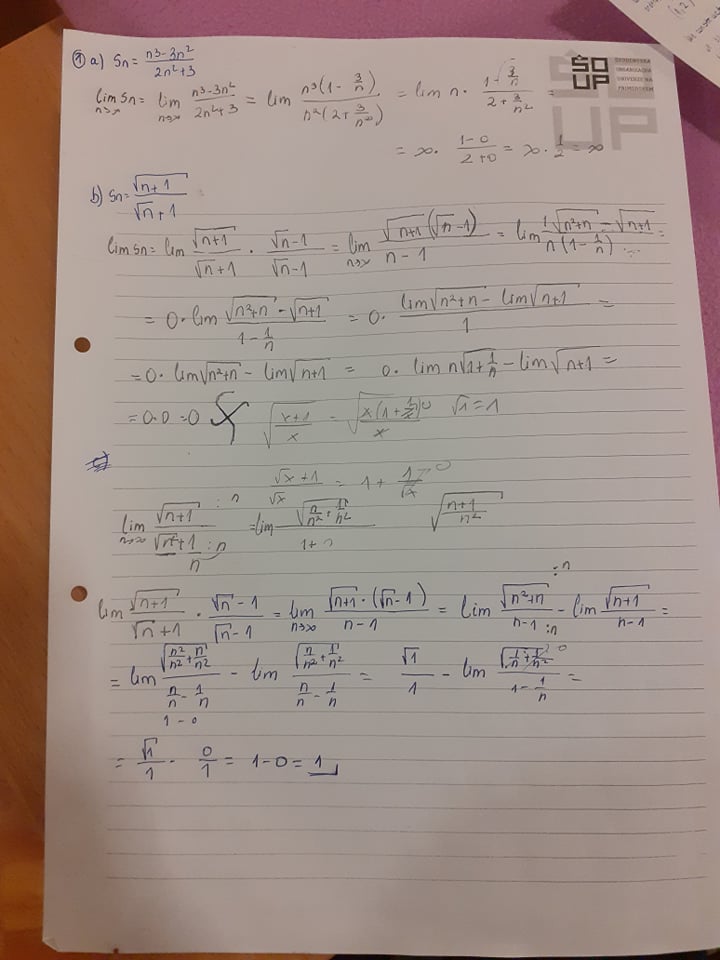 ① a) Sn = n³-3n² / 2n²+3
lim n→∞ Sn = lim n→∞ n³-3n² / 2n²+3 = lim n³(1-3/n) / n²(2+3/n²) = lim n · 1-3/n / 2+3/n² =
= ∞ · 1-0 / 2+0 = ∞ · 1/2 = ∞
b) Sn = √n+1 / √n + 1
lim Sn = lim √n+1 / √n + 1 · √n - 1 / √n - 1 = lim n→∞ √n+1 (√n - 1) / n - 1 = lim √n²+n - √n+1 / n(1-1/n) =
= 0 · lim √n²+n - √n+1 / 1-1/n = 0 · lim √n²+n - lim √n+1 / 1 =
= 0 · lim √n²+n - lim √n+1 = 0 · lim n√1+1/n - lim √n+1 =
= 0·0 = 0 √x+1/x = √x(1+1/x)/x 0 √1 = 1
√x + 1 / √x = 1 + 1/√x 0
lim n→∞ √n+1 :n / √n² + 1 :n = lim √n/n²+1/n² / 1+0 √n+1/n²
lim √n+1 / √n + 1 · √n - 1 / √n - 1 = lim n→∞ √n+1 · (√n - 1) / n - 1 = lim √n²+n :n / n-1 :n - lim √n+1 / n-1 =
= lim √n²/n²+n/n² / n/n-1/n - lim √n/n²+1/n² / n/n-1/n = √1/1 - lim √1/n+1/n² 0 / 1-1/n =
1-0
= √1/1 - 0/1 = 1-0 = 1
SO
UP